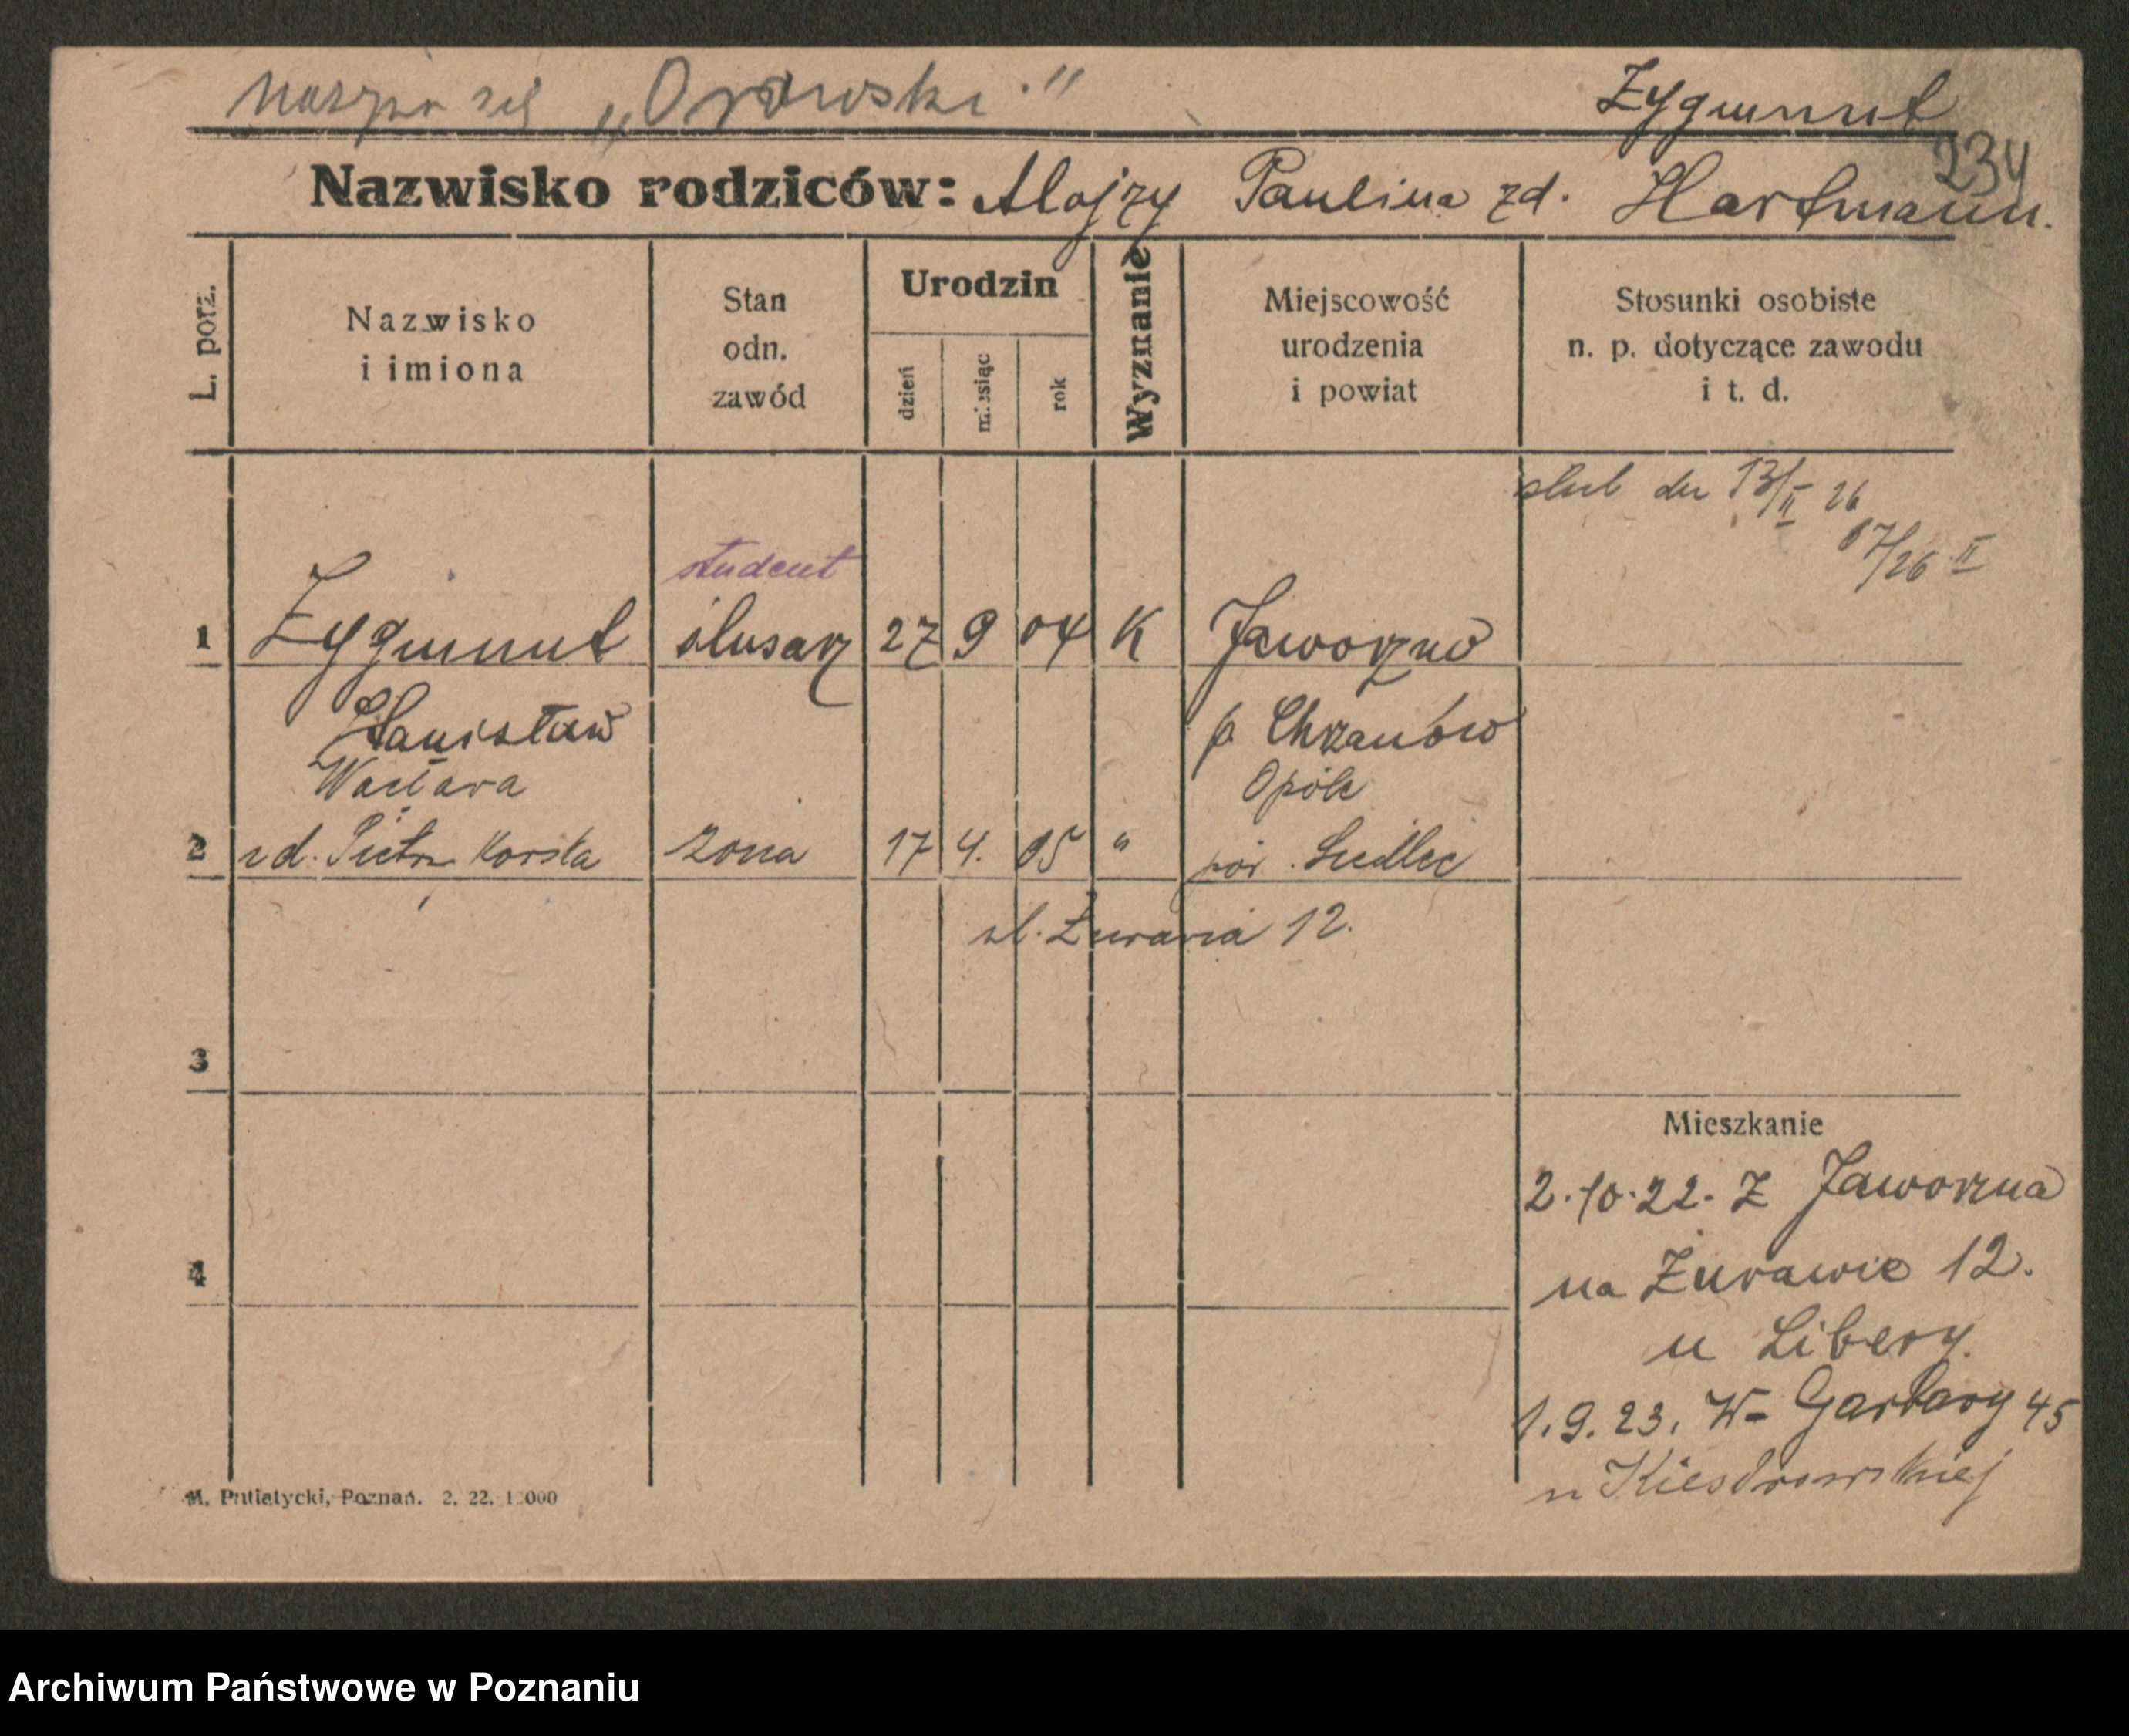 „Orowski" Zygmunt
234
Nazwisko rodziców: Alojzy Paulina zd. Hartmann.
L. porz.
Nazwisko
i imiona
Stan
odn.
zawód
Urodzin
dzień
miesiąc
rok
Wyznanie
Miejscowość
urodzenia
i powiat
Stosunki osobiste
n. p. dotyczące zawodu
i t. d.
ślub dn 13/II 26
67/26 II
student
1 Zygmunt ślusarz 27 9 04 K Jaworzno
Stanisław p Chrzanów
Wacława Opole
2 zd. żona 17 4. 05 " pow. Siedlce
ul. Żurawia 12.
3
Mieszkanie
2.10.22. Z Jaworzna
4
na Żurawie 12.
u Libery.
1.9.23. W- Garbary 45
u Kiedrowskiej
M. Putiatycki, Poznań. 2. 22. 1000
Archiwum Państwowe w Poznaniu